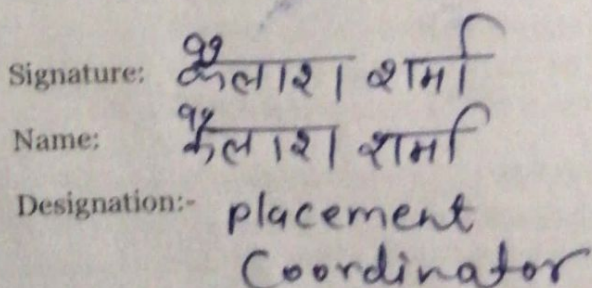 Signature: कैलाश शर्मा
Name: कैलाश शर्मा
Designation:- placement
Coordinator